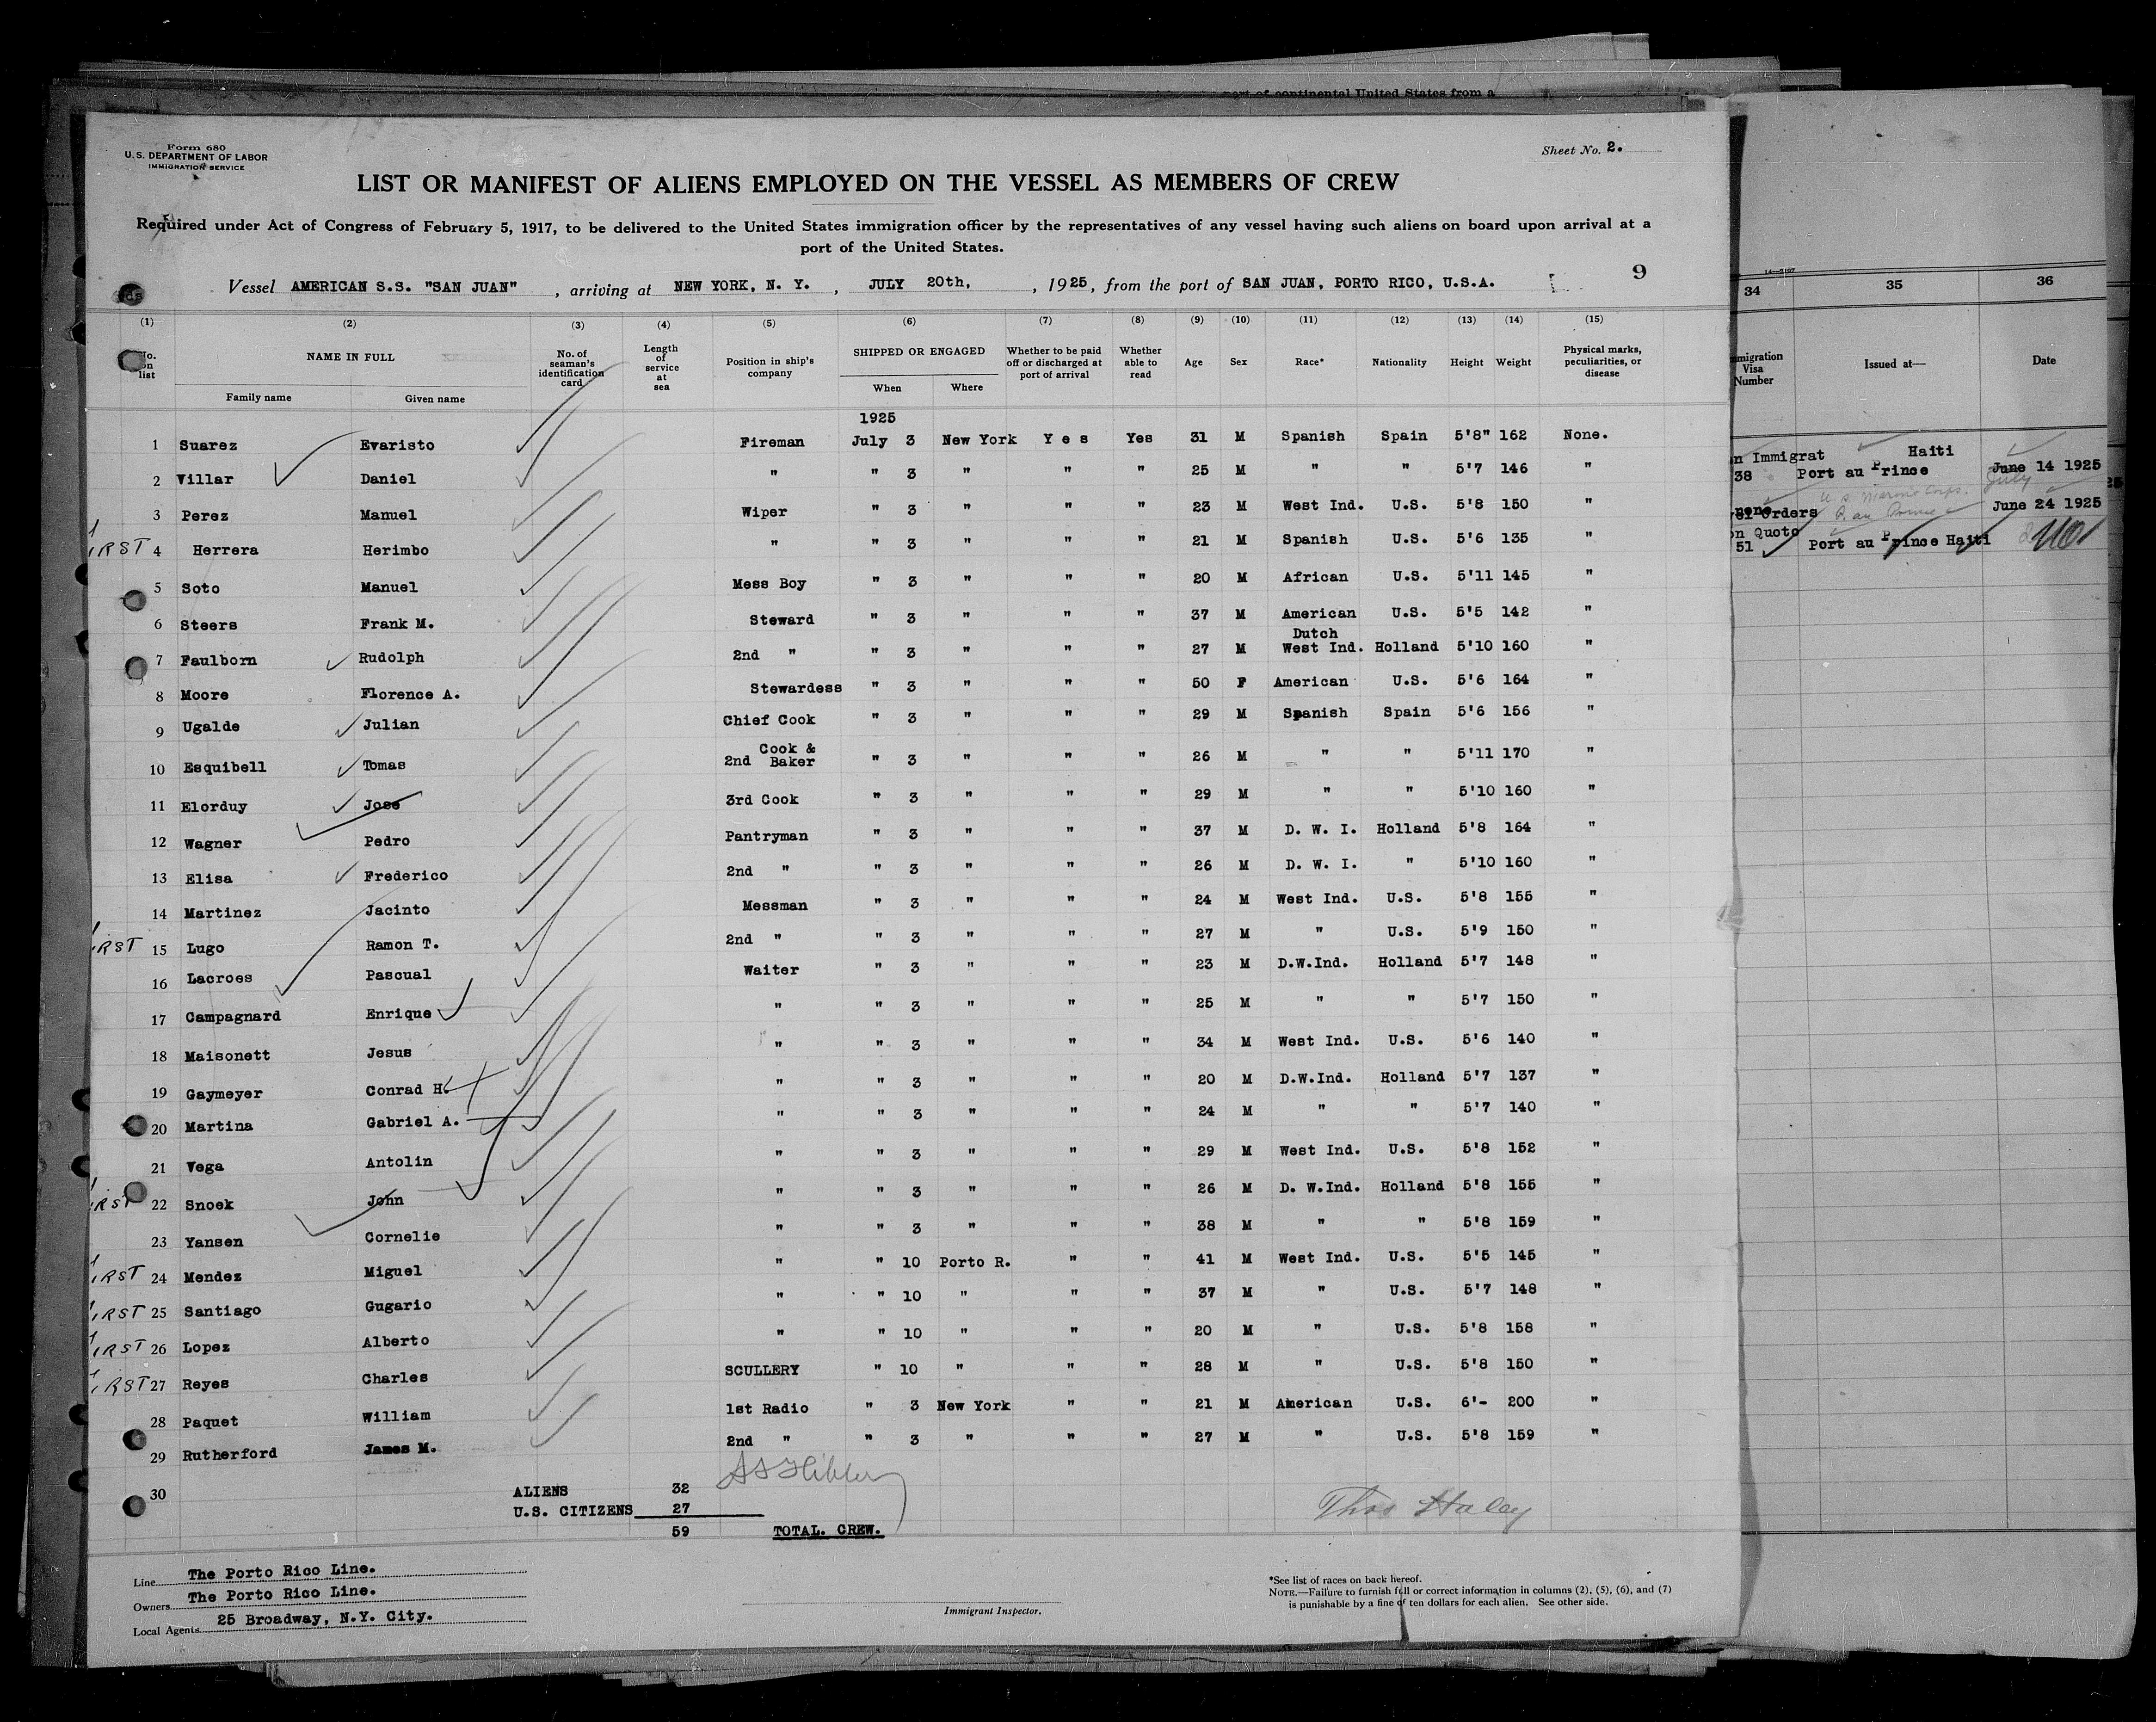 part of continental United States from a
Form 680
U.S. DEPARTMENT OF LABOR
IMMIGRATION SERVICE
Sheet No. 2.
LIST OR MANIFEST OF ALIENS EMPLOYED ON THE VESSEL AS MEMBERS OF CREW
Required under Act of Congress of February 5, 1917, to be delivered to the United States immigration officer by the representatives of any vessel having such aliens on board upon arrival at a
port of the United States.
Vessel AMERICAN S.S. "SAN JUAN" , arriving at NEW YORK, N. Y. , JULY 20th, , 1925, from the port of SAN JUAN, PORTO RICO, U.S.A. 9
(1) (2) (3) (4) (5) (6) (7) (8) (9) (10) (11) (12) (13) (14) (15)
No. on list NAME IN FULL Family name Given name No. of seaman's identification card Length of service at sea Position in ship's company SHIPPED OR ENGAGED When Where Whether to be paid off or discharged at port of arrival Whether able to read Age Sex Race* Nationality Height Weight Physical marks, peculiarities, or disease
1925
1 Suarez Evaristo Fireman July 3 New York Yes Yes 31 M Spanish Spain 5'8" 162 None.
2 Villar Daniel " " 3 " " " 25 M " " 5'7 146 "
3 Perez Manuel Wiper " 3 " " " 23 M West Ind. U.S. 5'8 150 "
1RST 4 Herrera Herimbo " " 3 " " " 21 M Spanish U.S. 5'6 135 "
5 Soto Manuel Mess Boy " 3 " " " 20 M African U.S. 5'11 145 "
6 Steers Frank M. Steward " 3 " " " 37 M American U.S. 5'5 142 "
7 Faulborn Rudolph 2nd " " 3 " " " 27 M Dutch West Ind. Holland 5'10 160 "
8 Moore Florence A. Stewardess " 3 " " " 50 F American U.S. 5'6 164 "
9 Ugalde Julian Chief Cook " 3 " " " 29 M Spanish Spain 5'6 156 "
10 Esquibell Tomas 2nd Cook & Baker " 3 " " " 26 M " " 5'11 170 "
11 Elorduy Jose 3rd Cook " 3 " " " 29 M " " 5'10 160 "
12 Wagner Pedro Pantryman " 3 " " " 37 M D. W. I. Holland 5'8 164 "
13 Elisa Frederico 2nd " " 3 " " " 26 M D. W. I. " 5'10 160 "
14 Martinez Jacinto Messman " 3 " " " 24 M West Ind. U.S. 5'8 155 "
1RST 15 Lugo Ramon T. 2nd " " 3 " " " 27 M " U.S. 5'9 150 "
16 Lacroes Pascual Waiter " 3 " " " 23 M D.W.Ind. Holland 5'7 148 "
17 Campagnard Enrique " " 3 " " " 25 M " " 5'7 150 "
18 Maisonett Jesus " " 3 " " " 34 M West Ind. U.S. 5'6 140 "
19 Gaymeyer Conrad H. " " 3 " " " 20 M D.W.Ind. Holland 5'7 137 "
20 Martina Gabriel A. " " 3 " " " 24 M " " 5'7 140 "
21 Vega Antolin " " 3 " " " 29 M West Ind. U.S. 5'8 152 "
1RST 22 Snoek John " " 3 " " " 26 M D. W.Ind. Holland 5'8 155 "
23 Yansen Cornelie " " 3 " " " 38 M " " 5'8 159 "
1RST 24 Mendez Miguel " " 10 Porto R. " " 41 M West Ind. U.S. 5'5 145 "
1RST 25 Santiago Gugario " " 10 " " " 37 M " U.S. 5'7 148 "
1RST 26 Lopez Alberto " " 10 " " " 20 M " U.S. 5'8 158 "
1RST 27 Reyes Charles SCULLERY " 10 " " " 28 M " U.S. 5'8 150 "
28 Paquet William 1st Radio " 3 New York " " 21 M American U.S. 6'- 200 "
29 Rutherford James M. 2nd " " 3 " " " 27 M " U.S. 5'8 159 "
30 ALIENS 32
U.S. CITIZENS 27
59 TOTAL. CREW.
Thos Haley
Line The Porto Rico Line.
Owners The Porto Rico Line.
Local Agents 25 Broadway, N.Y. City.
Immigrant Inspector.
*See list of races on back hereof.
NOTE.—Failure to furnish full or correct information in columns (2), (5), (6), and (7)
is punishable by a fine of ten dollars for each alien. See other side.
34 35 36
Immigration Visa Number Issued at— Date
n Immigrat Haiti
38 Port au Prince June 14 1925
July
U.S. Marine Corps.
Orders June 24 1925
n Quota
51 Port au Prince Haiti